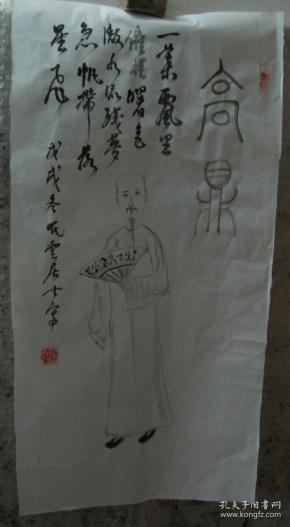 高鼎
一葉飄
曙色
微水流殘夢
急帆帶落
星飛
戊戌冬 雲居士寫
孔夫子旧书网
www.kongfz.com